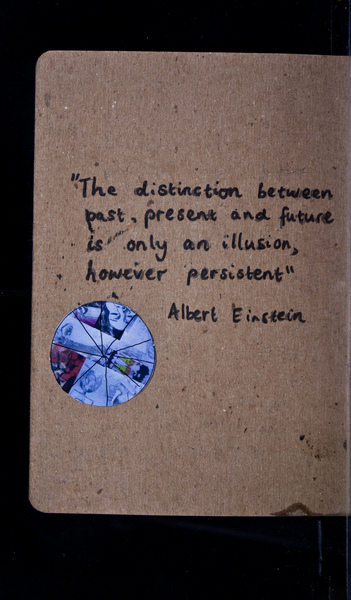 "The distinction between
past, present and future
is only an illusion,
however persistent"
Albert Einstein